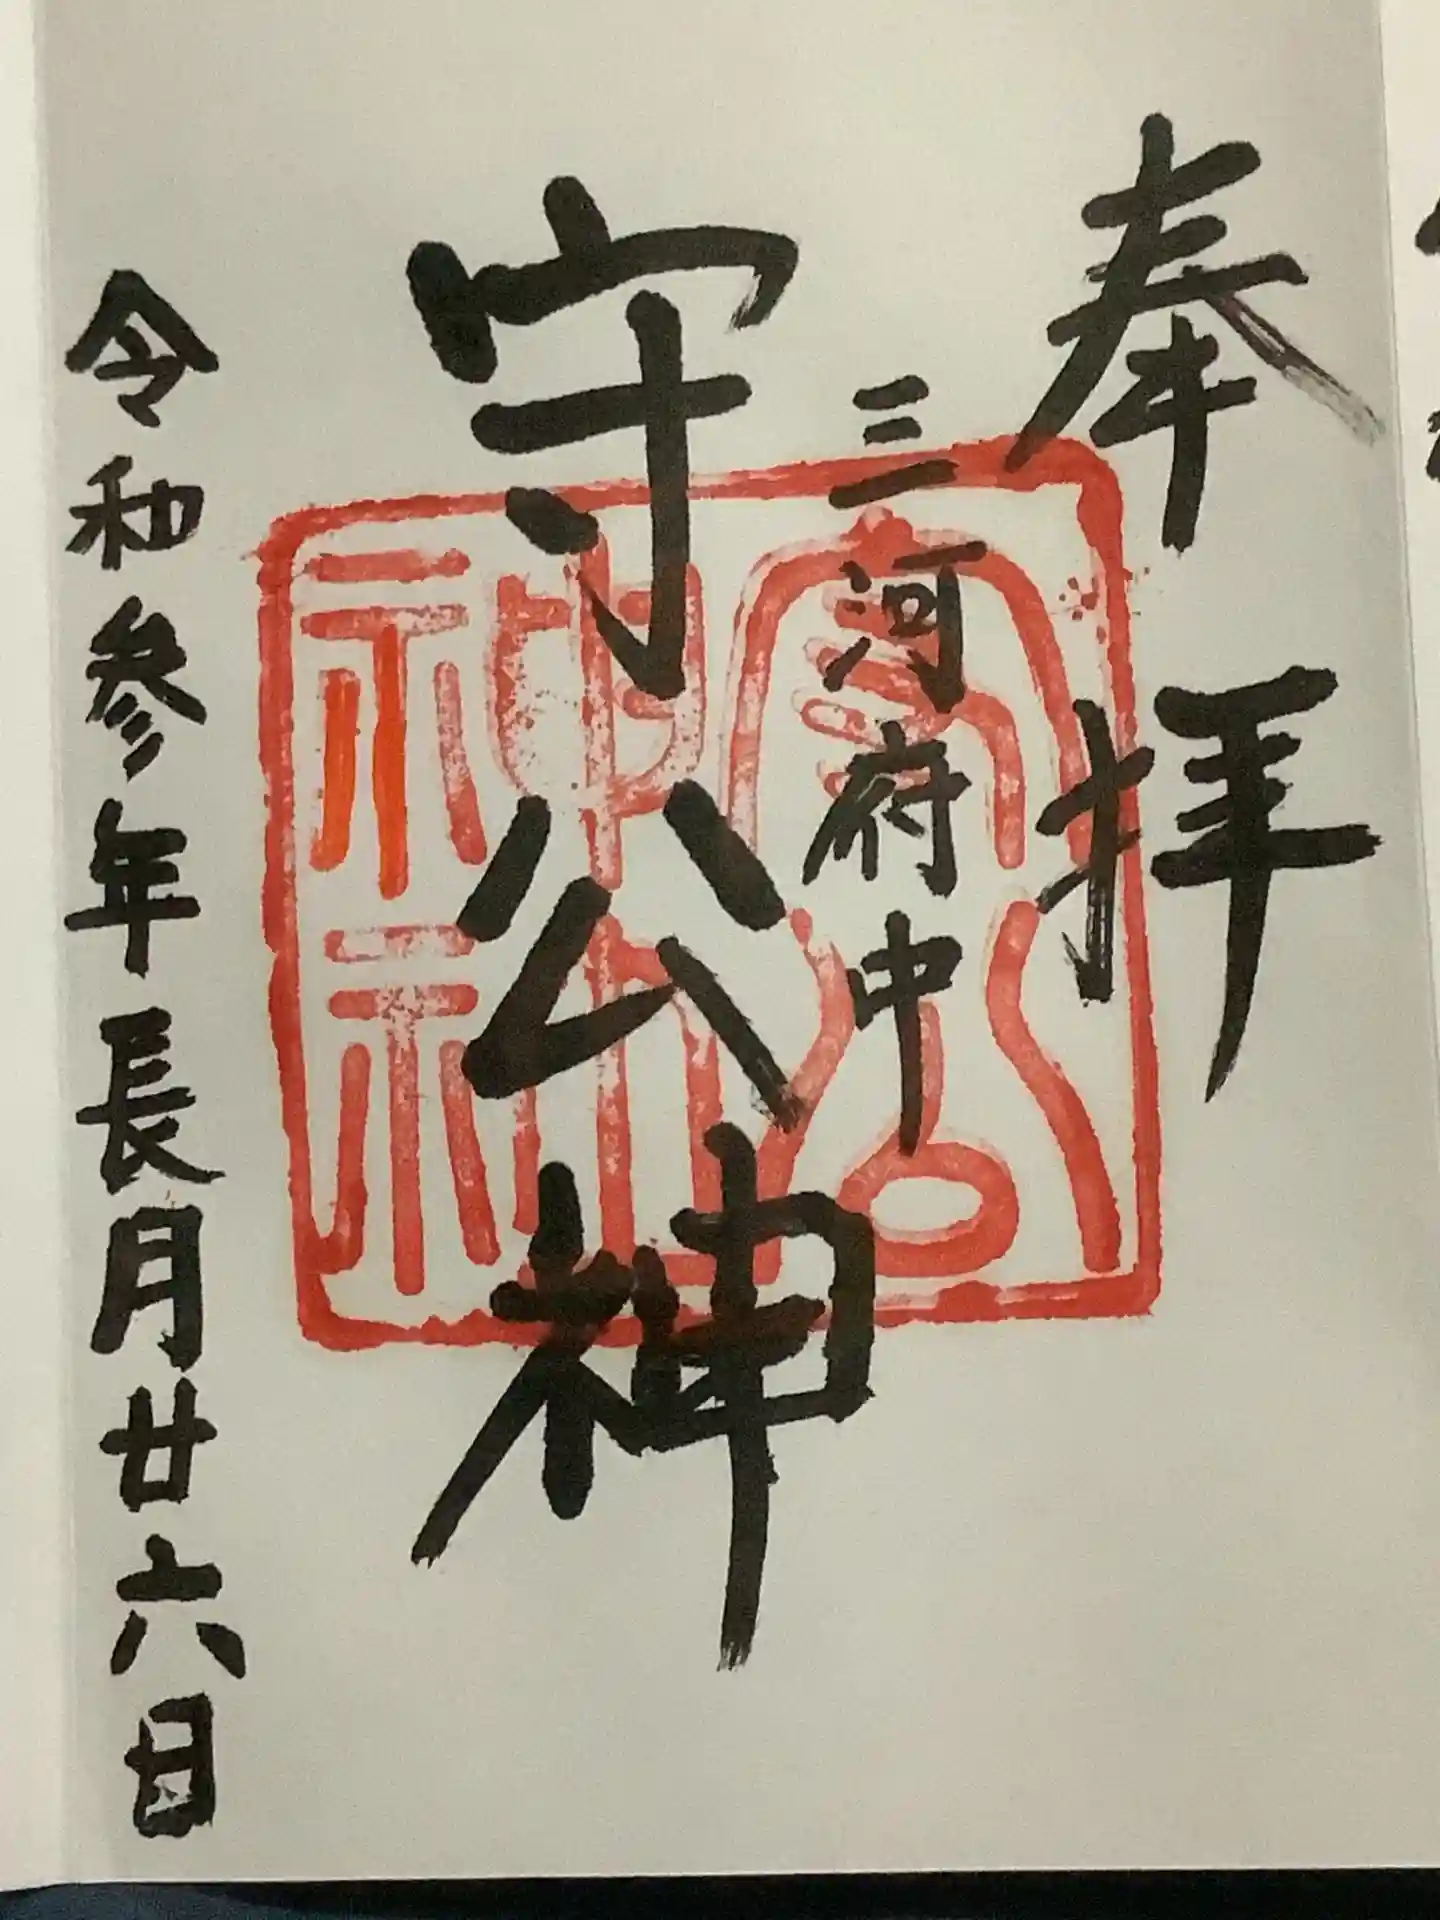 奉拝
三河府中
守公神
守公神社
令和参年長月廿六日